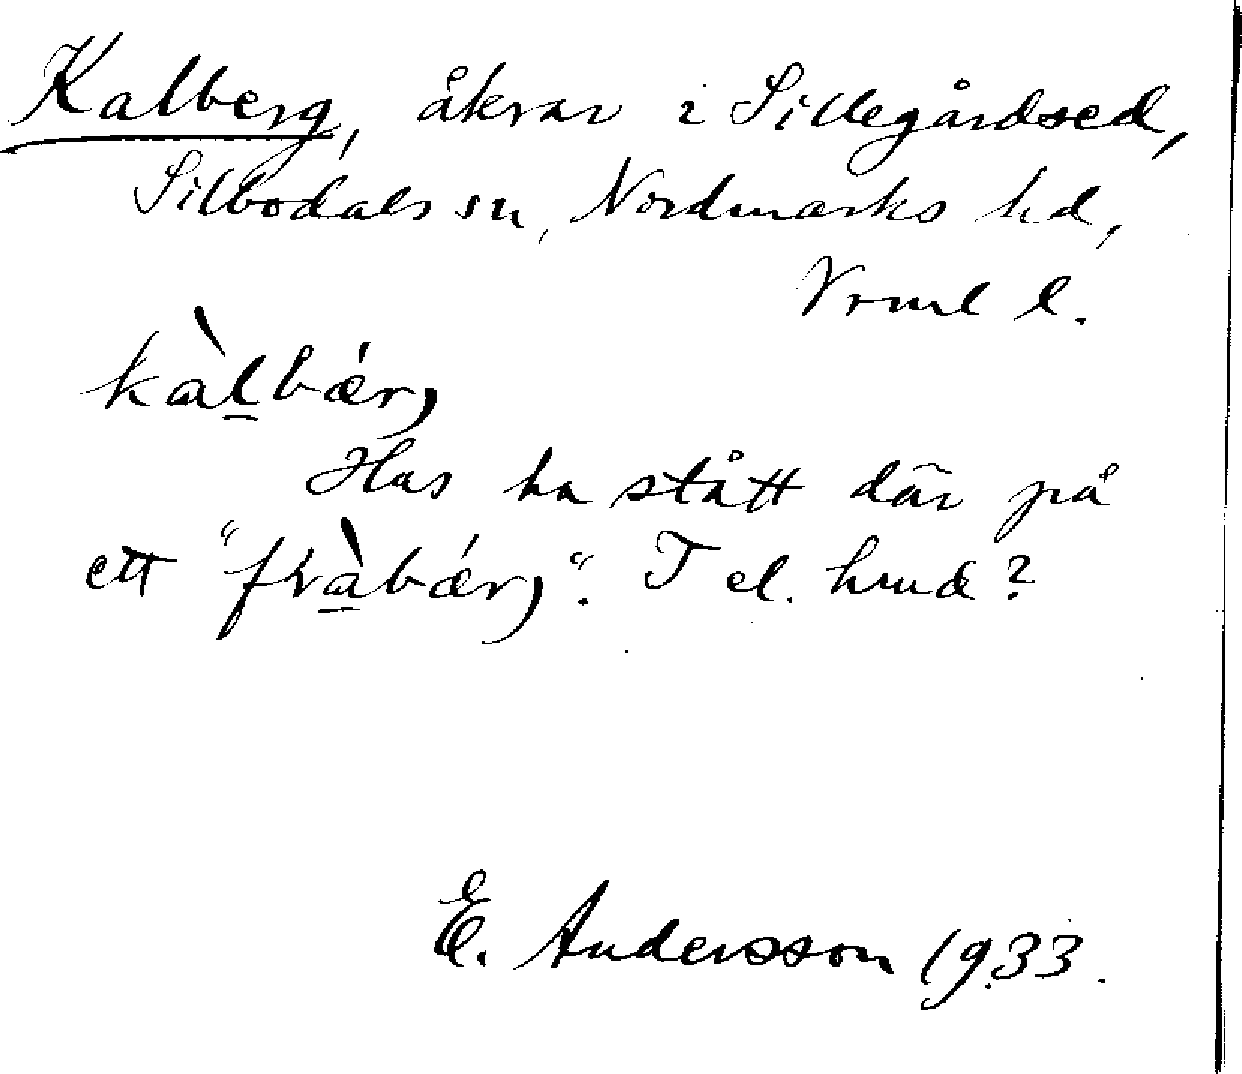 Kalberg, åkrar i Sillegårdsed,
Silbodals sn, Nordmarks hd,
Vrml l.
kàl̲bǽrj
Hus ha stått där på
ett "fràbǽrj". T el.
E. Andersson 1933.